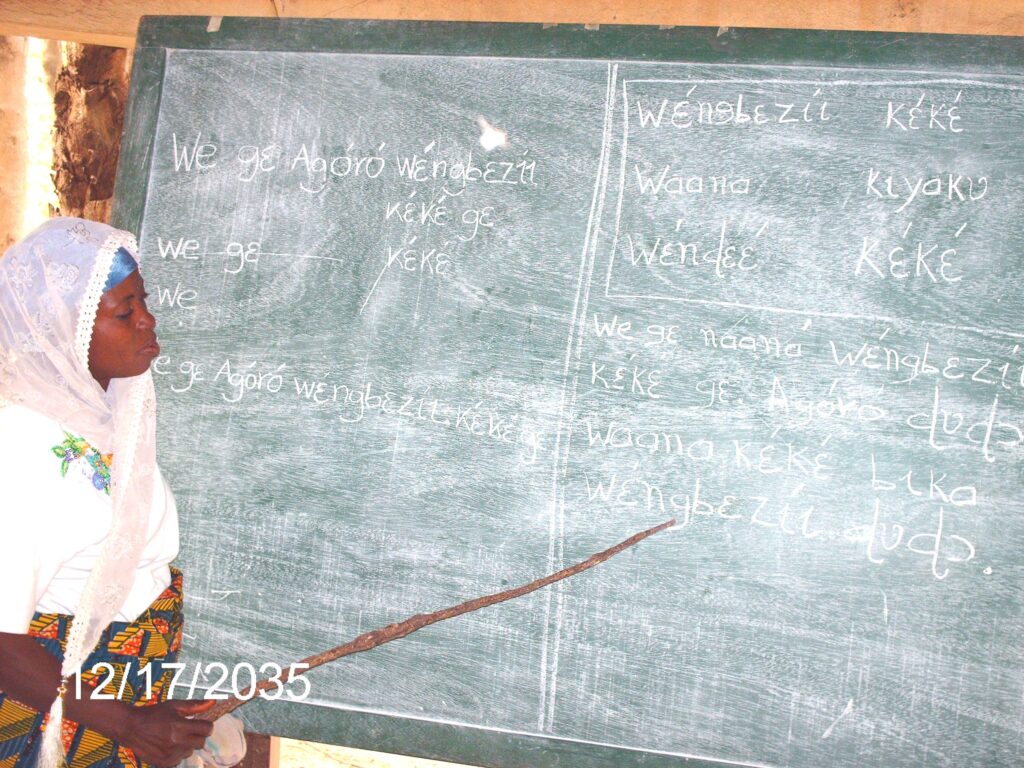 We gɛ Agóró wɛ́ngbɛzɩ́ɩ
kɛ́kɛ́ gɛ
we gɛ kɛ́kɛ́
we
e gɛ Agóró wɛ́ngbɛzɩ́ɩ kɛ́kɛ gɛ
wɛ́ngbɛzɩ́ɩ kɛ́kɛ́
waana kɩyakʋ
wɛ́nɖɛɛ́ kɛ́kɛ́
we gɛ náaná wɛ́ngbɛzɩ́ɩ
kɛ́kɛ gɛ. Agóro ɖʋɖɔ
waana kɛ́kɛ́ bɩka
wɛ́ngbɛzɩ́ɩ ɖʋɖɔ.
12/17/2035